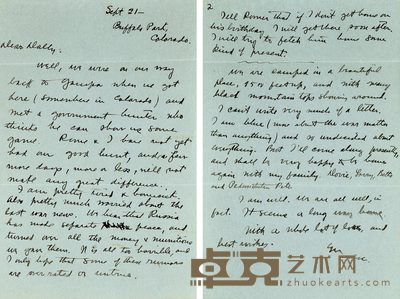 Sept 21—
Buffalo Park,
Colorado.
Dear Dolly:
Well, we were on our way
back to Gunnison when we got
here (somewhere in Colorado) and
met a government hunter who
thinks he can show us some
game. Romer & I have not yet
had our good hunt, and a few
more days, more or less, will not
make any great difference.
I am pretty tired & homesick,
also pretty much worried about the
last war news. We hear that Russia
has made separate peace, and
turned over all the money & munitions
we gave them. It is all too horrible, and
I only hope that some of these rumours
are overrated or untrue.
2
Tell Romer that if I don't get home on
his birthday I will get there soon after.
I will try to fetch him home some
kind of present.
We are camped in a beautiful
place, 8500 feet up, and with many
black mountain tops showing around.
I can't write very much of a letter.
I am blue (more about the war matter
than anything) and so undecided about
everything. But I'll come along presently,
and shall be very happy to be home
again with my family. Betty
and
I am well. We are all well, in
fact. It seems a long way home.
With a whole lot of love, and
best wishes.
卓克艺术网
www.zhuokearts.com